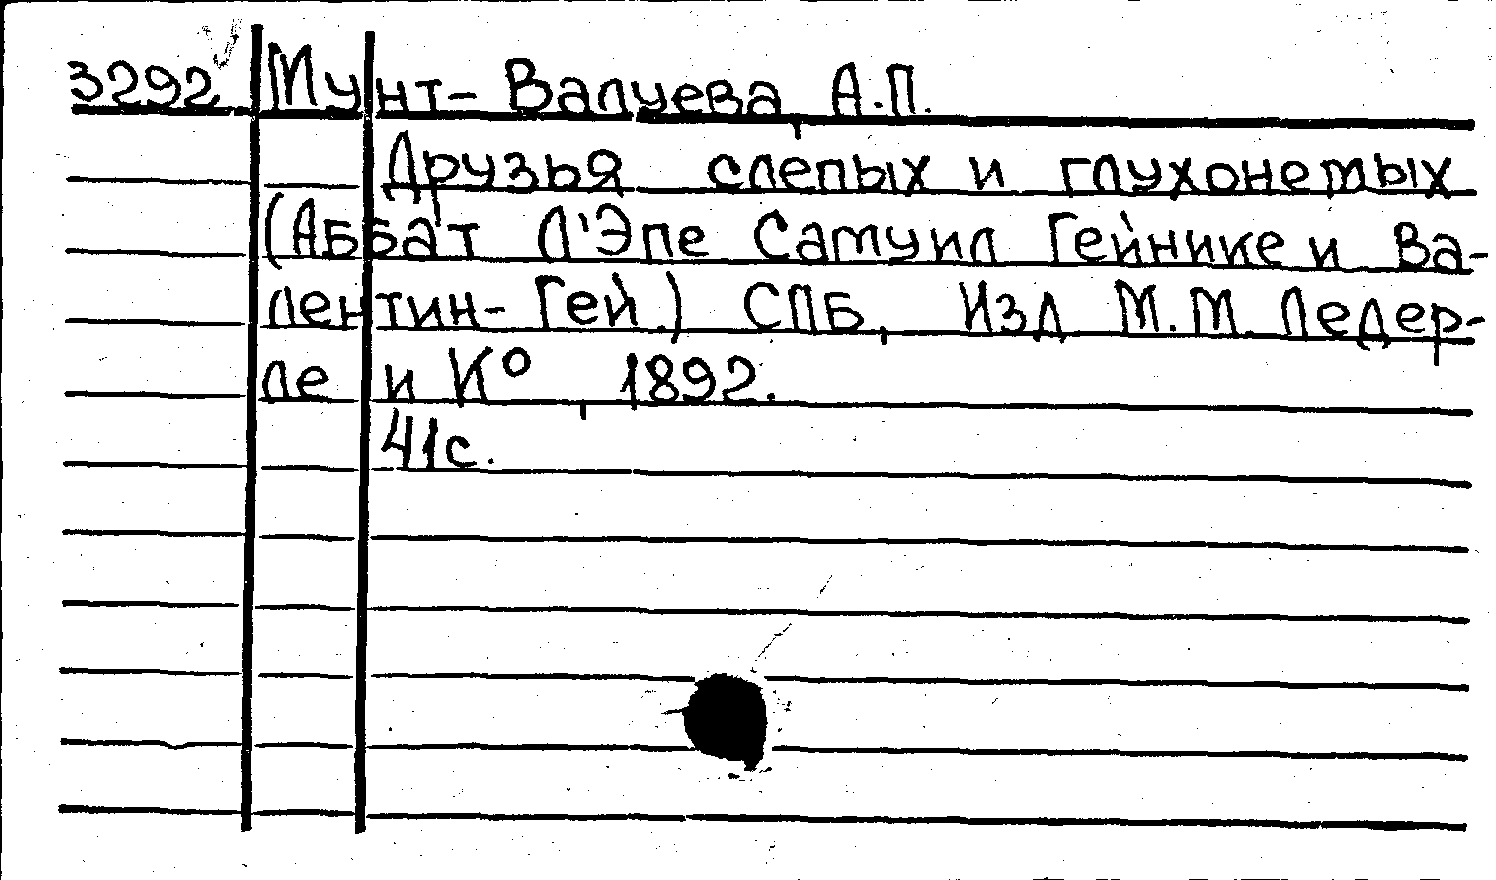 3292 Мунт-Валуева, А.П.
Друзья слепых и глухонемых
(Аббат Л'Эпе Самуил Гейнике и Ва-
лентин-Гей.) СПБ, Изд М.М. Ледер-
ле и К°, 1892.
41с.